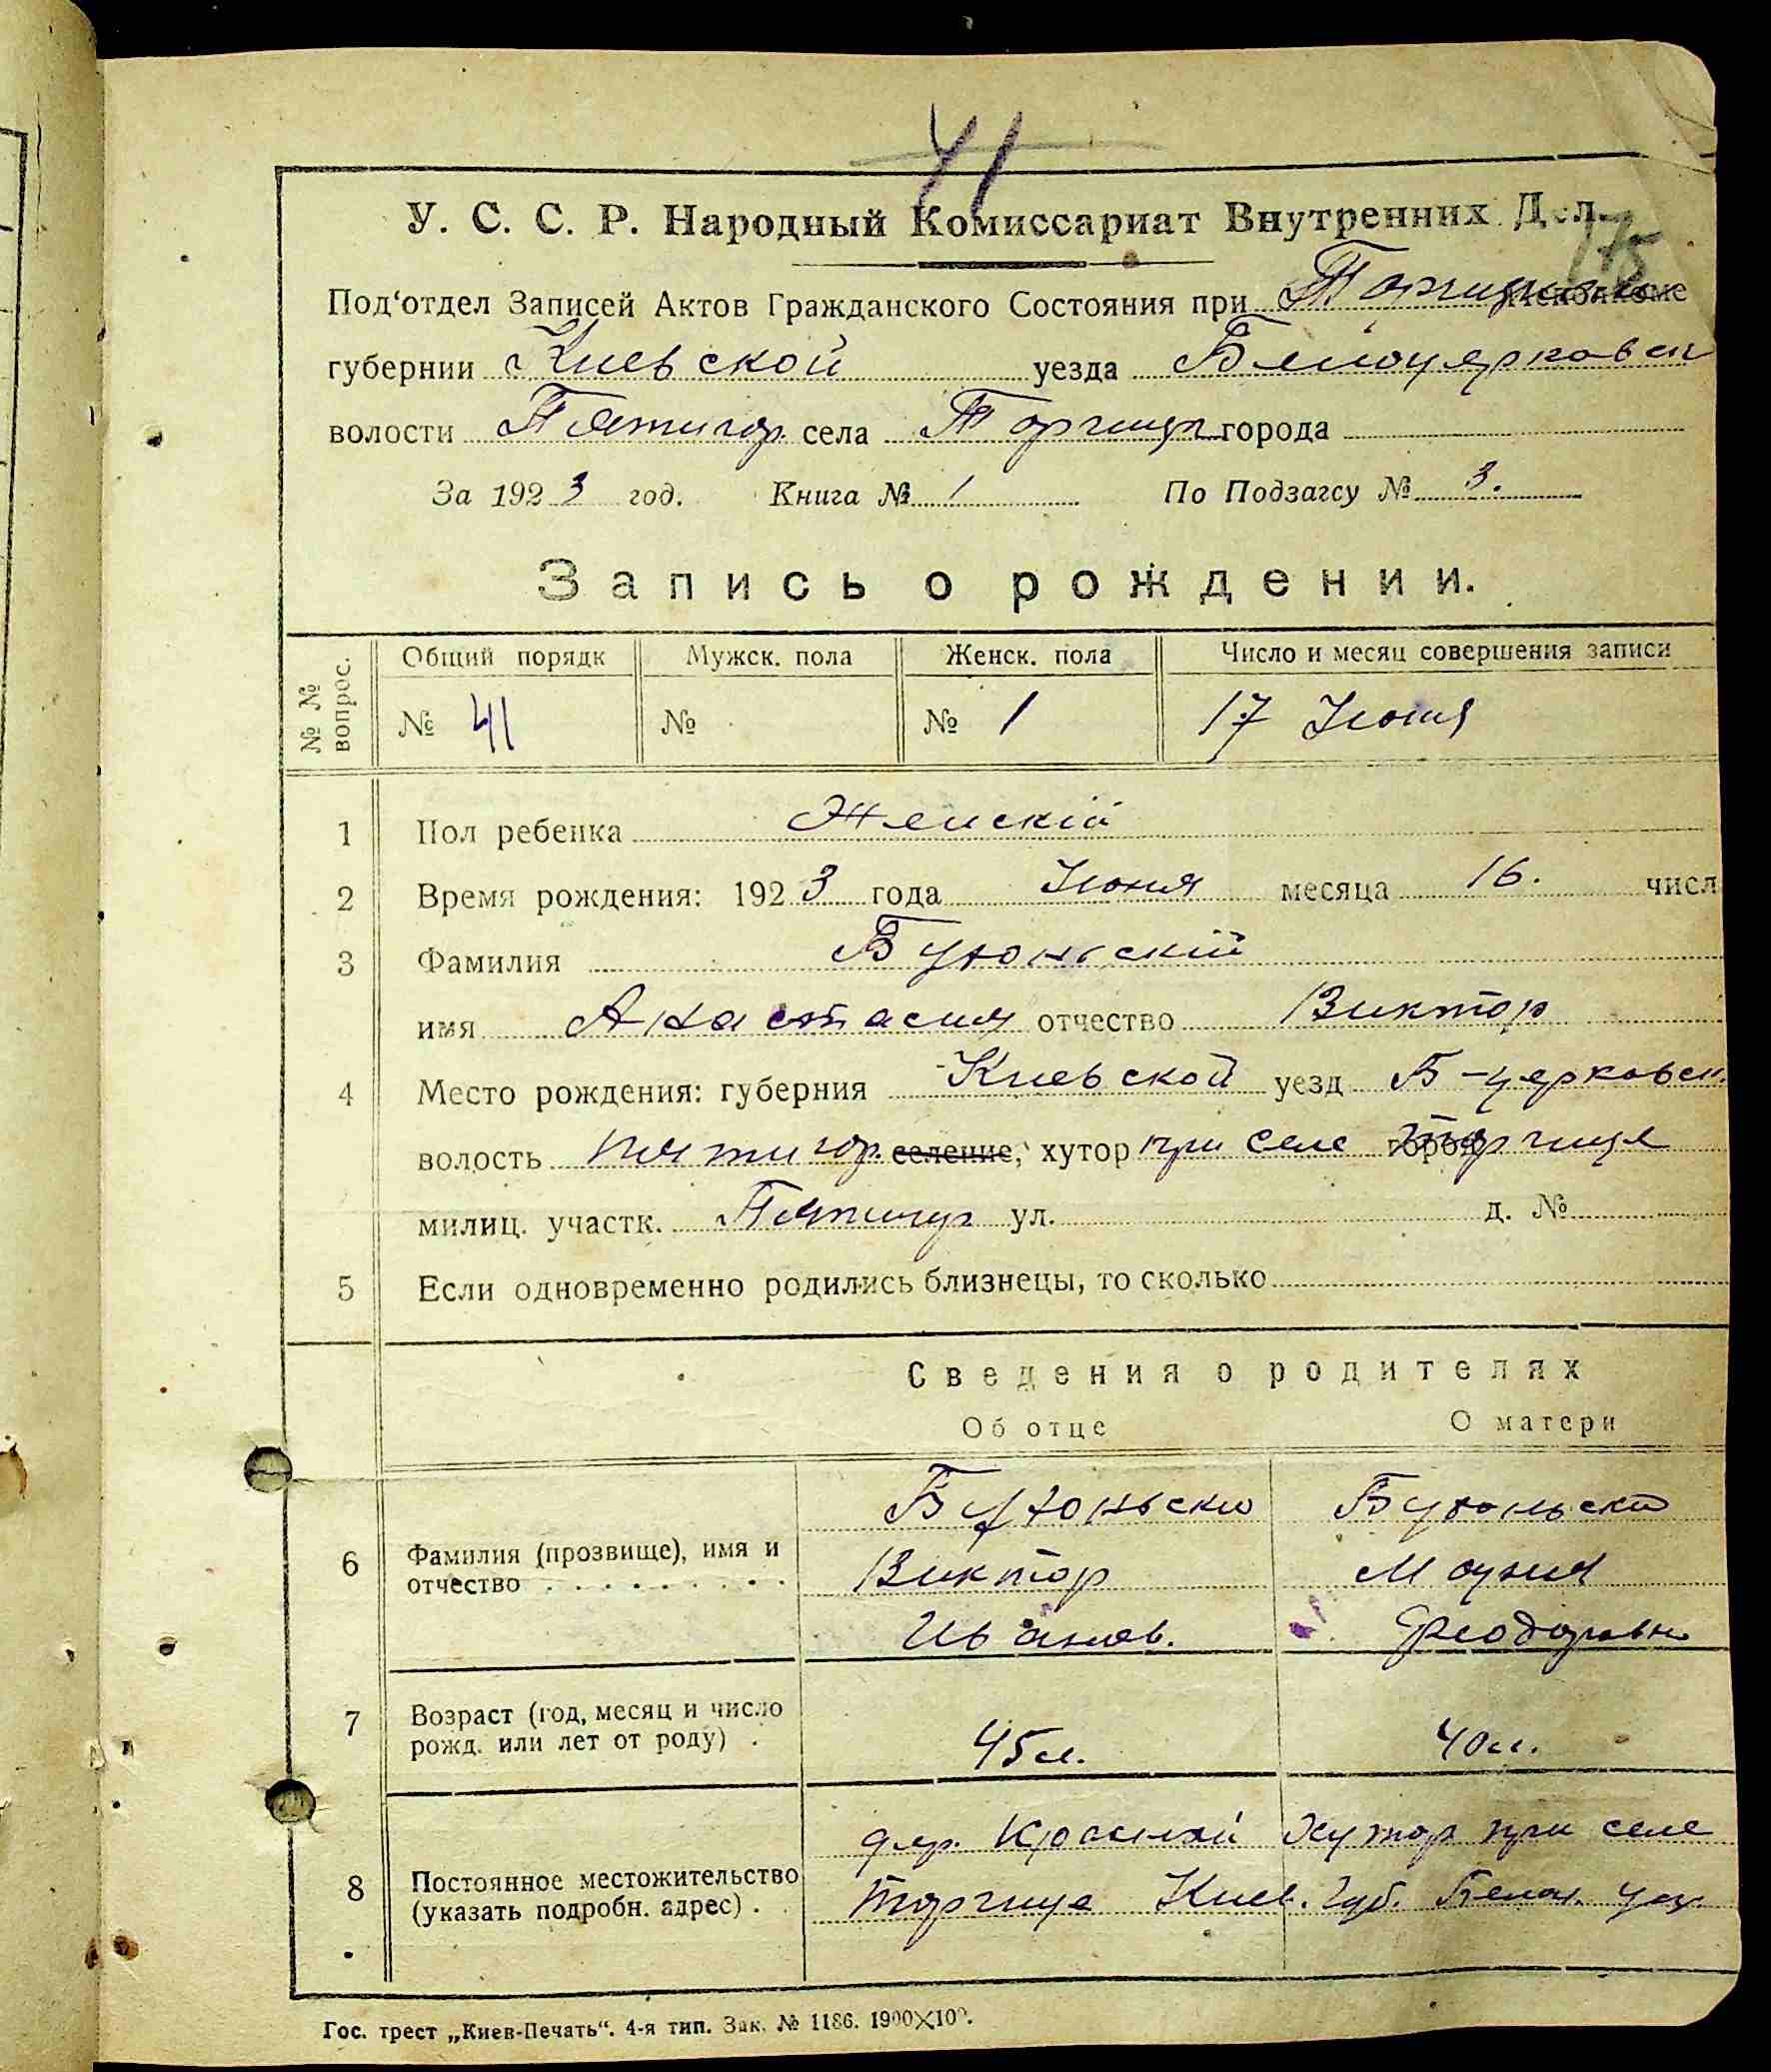 41
У. С. С. Р. Народный Комиссариат Внутренних Дел.
175
Под‘отдел Записей Актов Гражданского Состояния при исполкоме
губернии Киевской уезда Белоцерковск
волости Пятигор. села Торчица города
За 1923 год. Книга № 1 По Подзагсу № 3.
Запись о рождении.
№ № вопрос. Общий порядк Мужск. пола Женск. пола Число и месяц совершения записи
№ 41 № № 1 17 Июня
1 Пол ребенка Женскій
2 Время рождения: 1923 года Июня месяца 16. числ
3 Фамилия
имя Анастасия отчество Виктор
4 Место рождения: губерния Киевской уезд Б-церковск.
волость Пятигор. селение, хутор при селе город Торчице
милиц. участк. Пятигор ул. д. №
5 Если одновременно родились близнецы, то сколько
Сведения о родителях
Об отце О матери
6 Фамилия (прозвище), имя и
отчество
Виктор
Иванов. Феодоровн
7 Возраст (год, месяц и число
рожд. или лет от роду) . 45 л. 40 л.
хутор при селе
8 Постоянное местожительство
(указать подробн. адрес) . Торчице Киев. Губ. Белоц. уез.
Гос. трест „Киев-Печать“. 4-я тип. Зак. № 1186. 1900×100.